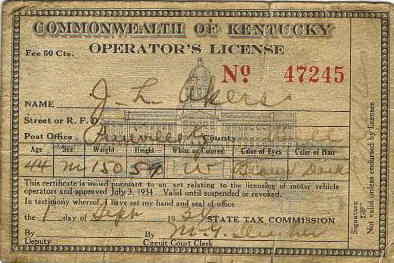 COMMONWEALTH OF KENTUCKY
Fee 50 Cts.
OPERATOR'S LICENSE
No 47245
NAME J. L. Akers
Street or R. F. D.
Post Office County
Age Sex Weight Height White or Colored Color of Eyes Color of Hair
44 M 150 59 W Brown Dark
This certificate is issued pursuant to an act relating to the licensing of motor vehicle
operators and approved July 3, 1934. Valid until suspended or revoked.
In testimony whereof I have set my hand and seal of office
the 1 day of Sept 193 STATE TAX COMMISSION
By By
Deputy Circuit Court Clerk
Signature
Not valid unless endorsed by licensee